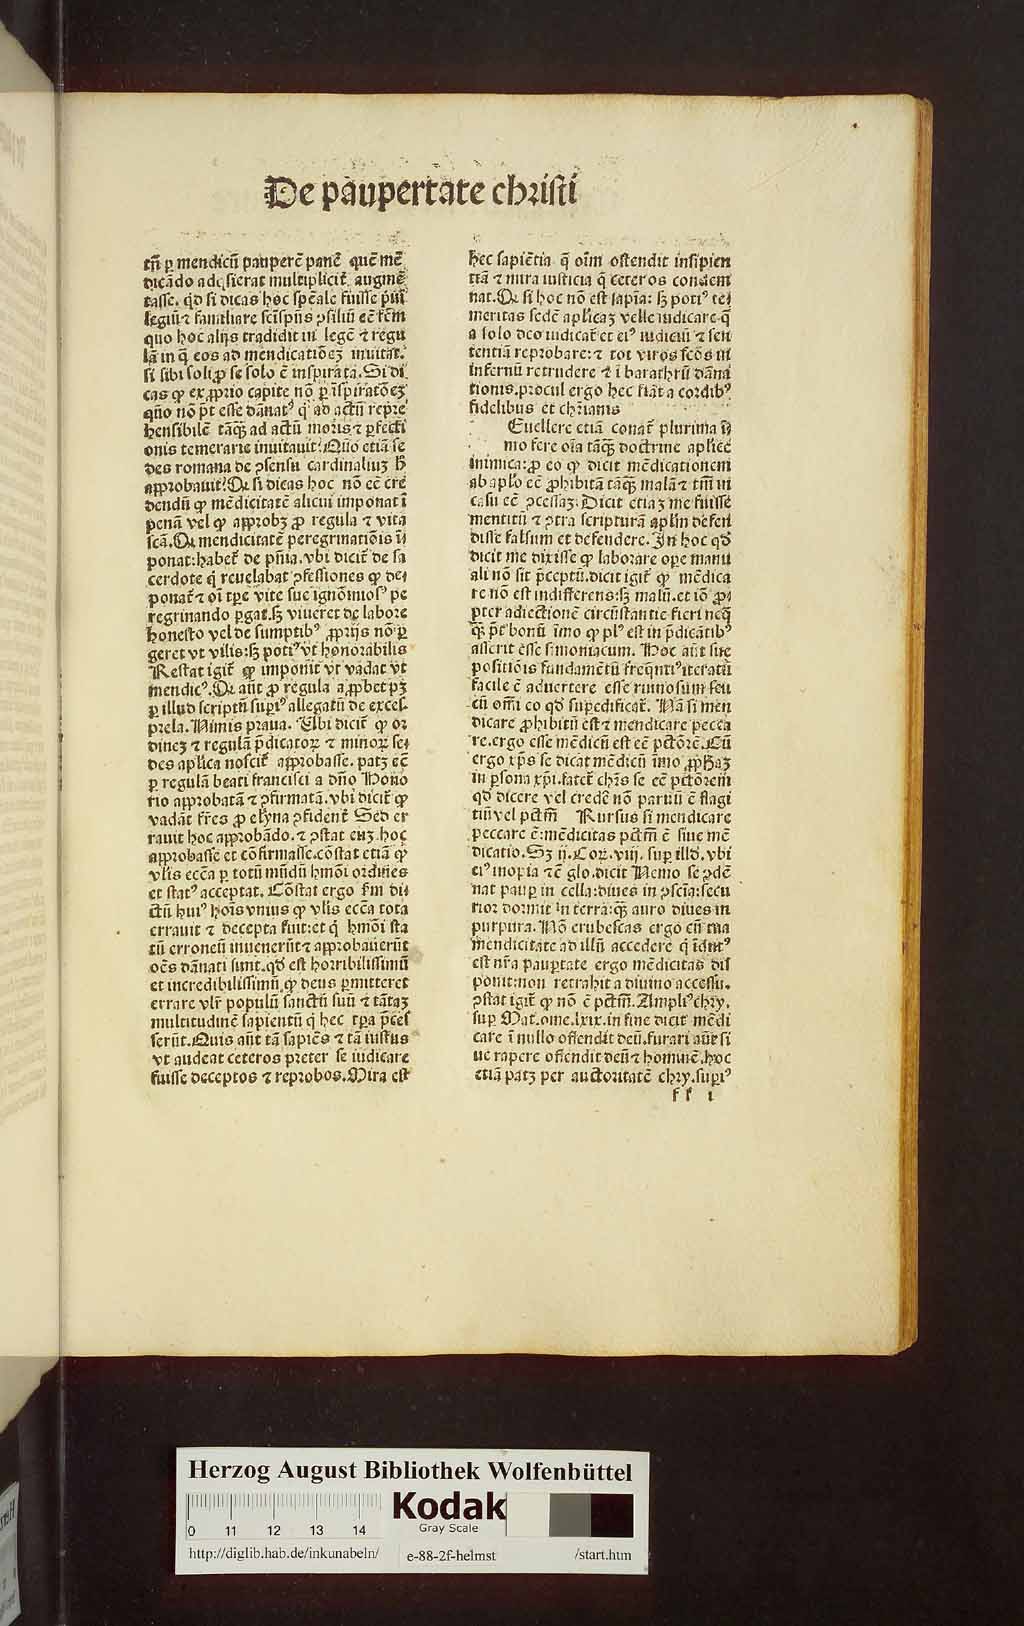 De paupertate christi
tm̄ ꝑ mendicū pauperē panē quē mē
dicādo adqͥsierat multiplicit̄ augmē
tasse. qd si dicas hoc spēale fuisse pͥui
legiū ⁊ familiare scī spūs ꝯsiliū eē tm̄
quo hoc alijs tradidit in legē ⁊ regu
lā in q̄ eos ad mendicatiōeȝ inuitat.
si sibi soli ꝓ se solo ē inspirata. Si di
cas ꝙ ex ꝓprio capite nō ꝑ īspiratōeȝ
quō nō pt̄ esse dānatꝰ qͥ ad actū repre
hensibilē tāqȝ ad actū moris ⁊ ꝑfecti
onis temerarie inuitauit? Quō etiā se
des romana de ꝯsensu cardinaliuȝ h̄
approbauit? Qȝ si dicas hoc nō eē cre
dendū ꝙ mēdicitatē alicui imponat ī
penā vel ꝙ approbȝ ꝓ regula ⁊ vita
scā. Qȝ mendicitatē peregrinatiōis ī
ponat: habet̄ de pn̄ia. vbi dicit̄ de sa
cerdote qͥ reuelabat ꝯfessiones ꝙ de
ponat̄ ⁊ oī tꝑe vite sue ignōmiosꝰ pe
regrinando ꝑgat. sȝ viueret de labore
honesto vel de sumptibꝰ ꝓprijs nō ꝑ
geret vt vilis: sȝ potiꝰ vt honorabilis
Restat igit̄ ꝙ imponit̄ vt vadat vt
mendicꝰ. Qȝ aūt ꝓ regula approbet pȝ
ꝑ illud scriptū supiꝰ allegatū de exces.
prela. Nimis praua. Ubi dicit̄ ꝙ or
dineȝ ⁊ regulā p̄dicatoꝝ ⁊ minoꝝ se
des aplica noscit̄ approbasse. patȝ eē
ꝑ regulā beati francisci a dn̄o Hono
rio approbatā ⁊ ꝯfirmatā. vbi dicit̄ ꝙ
vadāt fr̄es ꝓ elyna ꝯfident̄ Sed er
rauit hoc approbādo. ⁊ ꝯstat euȝ hoc
approbasse et cōfirmasse. cōstat etiā ꝙ
vlis ecc̄a ꝑ totū mūdū hmōi ordines
et statꝰ acceptat. Cōstat ergo ẜm di
ctū huiꝰ hoīs vnius ꝙ vlis ecc̄a tota
errauit ⁊ decepta fuit: et qͥ hmōi sta
tū erroneū inuenerūt ⁊ approbauerūt
oēs dānati sunt. qd est horribilissimū
et incredibilissimū ꝙ deus ꝑmitteret
errare vlr̄ populū sanctū suū ⁊ tātaȝ
multitudinē sapientū qͥ hec tꝑa p̄ces
serūt. Quis aūt tā sapiēs ⁊ tā iustus
vt audeat ceteros preter se iudicare
fuisse deceptos ⁊ reprobos. Mira est
hec sapiētia q̄ oīm ostendit insipien
tiā ⁊ mira iusticia q̄ ceteros condem
nat. Qȝ si hoc nō est sapīa: sȝ potiꝰ te
meritas sedē aplicaȝ velle iudicare q̄
a solo deo iudicat̄ et eiꝰ iudiciū ⁊ sen
tentiā reprobare: ⁊ tot viros scōs in
infernū retrudere ⁊ ī barathrū dāna
tionis. procul ergo hec fiāt a cordibꝰ
fidelibus et chrīanis
Euellere etiā conat̄ plurima ī
mo fere oīa tāqȝ doctrine aplice
inimica: ꝓ eo ꝙ dicit mēdicationem
ab aplo eē ꝓhibitā tāqȝ malā ⁊ tm̄ in
casu eē ꝯcessaȝ. Dicit etiaȝ me fuisse
mentitū ⁊ ꝯtra scripturā aplīn defen
disse falsum et defendere. In hoc qd
dicit me dixisse ꝙ laborare ope manu
ali nō sit p̄ceptū. dicit igit̄ ꝙ mēdica
re nō est indifferens: sȝ malū. et iō ꝓ
pter adiectionē circūstantie fieri neqͥ
qȝ pt̄ bonū īmo ꝙ plꝰ est in p̄dicātibꝰ
asserit esse simoniacum. Hoc aūt sue
positiōis fundamētū freqn̄tiꝰ iteratū
facile ē aduertere esse ruinosum seu
cū om̄i eo qd supedificat̄. Nā si men
dicare ꝓhibitū est ⁊ mendicare pecca
re. ergo esse mēdicū est eē pctōrē. Cū
ergo xp̄s se dicat mēdicū īmo ꝓphaȝ
in ꝑsona xp̄i. fatet̄ chr̄s se eē pctōrem
qd dicere vel credē nō paruū ē flagi
tiū vel pctm̄ Rursus si mendicare
peccare ē: mēdicitas pctm̄ ē siue mē
dicatio. Sȝ ij. Coꝝ. viij. sup illd. vbi
eiꝰ inopia ⁊c̄ glo. dicit Nemo se ꝯdē
nat pauꝑ in cella: diues in ꝯscīa: secu
rior dormit in terra: qȝ auro diues in
purpura. Nō erubescas ergo cū tua
mendicitate ad illū accedere qͥ īdutꝰ
est nr̄a pauꝑtate ergo mēdicitas dis
ponit: non retrahit a diuino accessu.
ꝯstat igit̄ ꝙ nō ē pctm̄. Ampliꝰ chry.
sup Mat. ome. lxix. in fine dicit mēdi
care ī nullo offendit deū. furari aūt si
ue rapere offendit deū ⁊ hominē. hoc
etiā patȝ per auctoritatē chry. supiꝰ
f f i
Herzog August Bibliothek Wolfenbüttel
0 11 12 13 14
Kodak
Gray Scale
http://diglib.hab.de/inkunabeln/ e-88-2f-helmst /start.htm